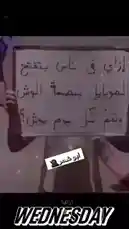 إزاي في ناس بتفتح
الموبايل ببصمة الوش
وهم كل يوم بوش؟
ابو شنب
WEDNESDAY